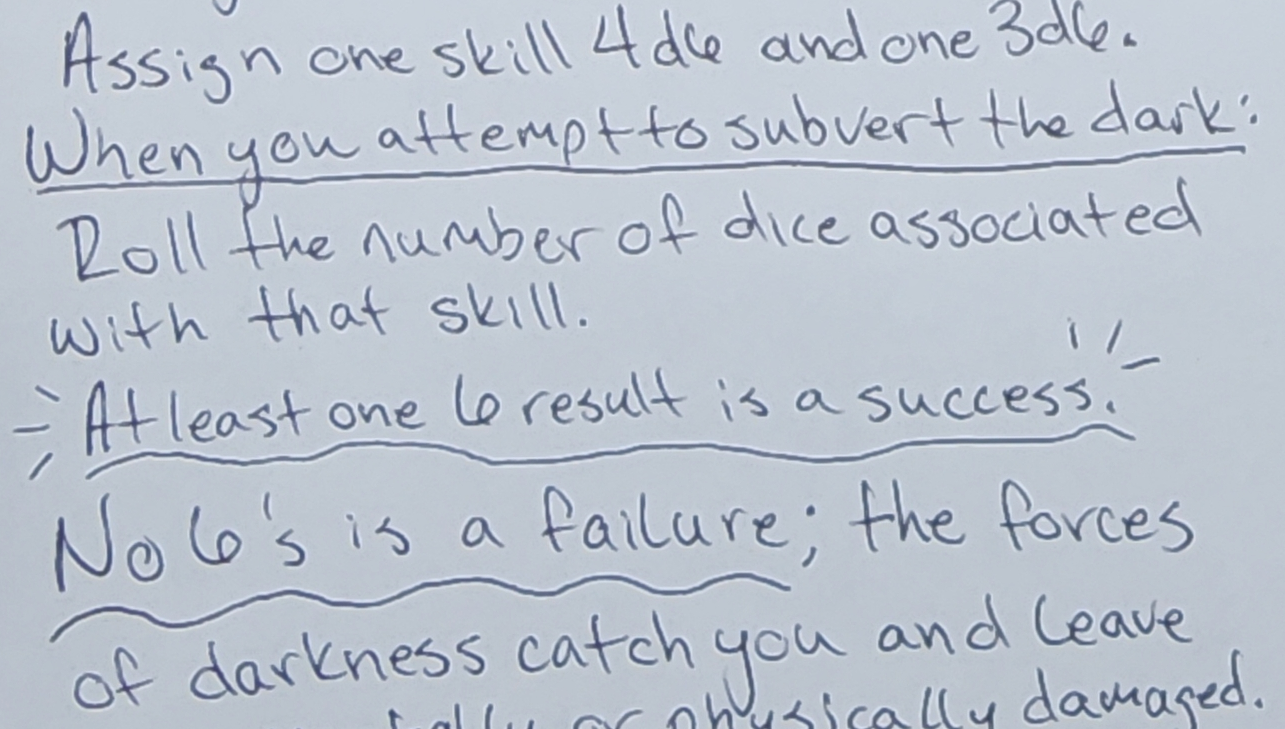 Assign one skill 4d6 and one 3d6.
When you attempt to subvert the dark:
Roll the number of dice associated
with that skill.
At least one 6 result is a success.
No 6's is a failure; the forces
of darkness catch you and leave
or physically damaged.